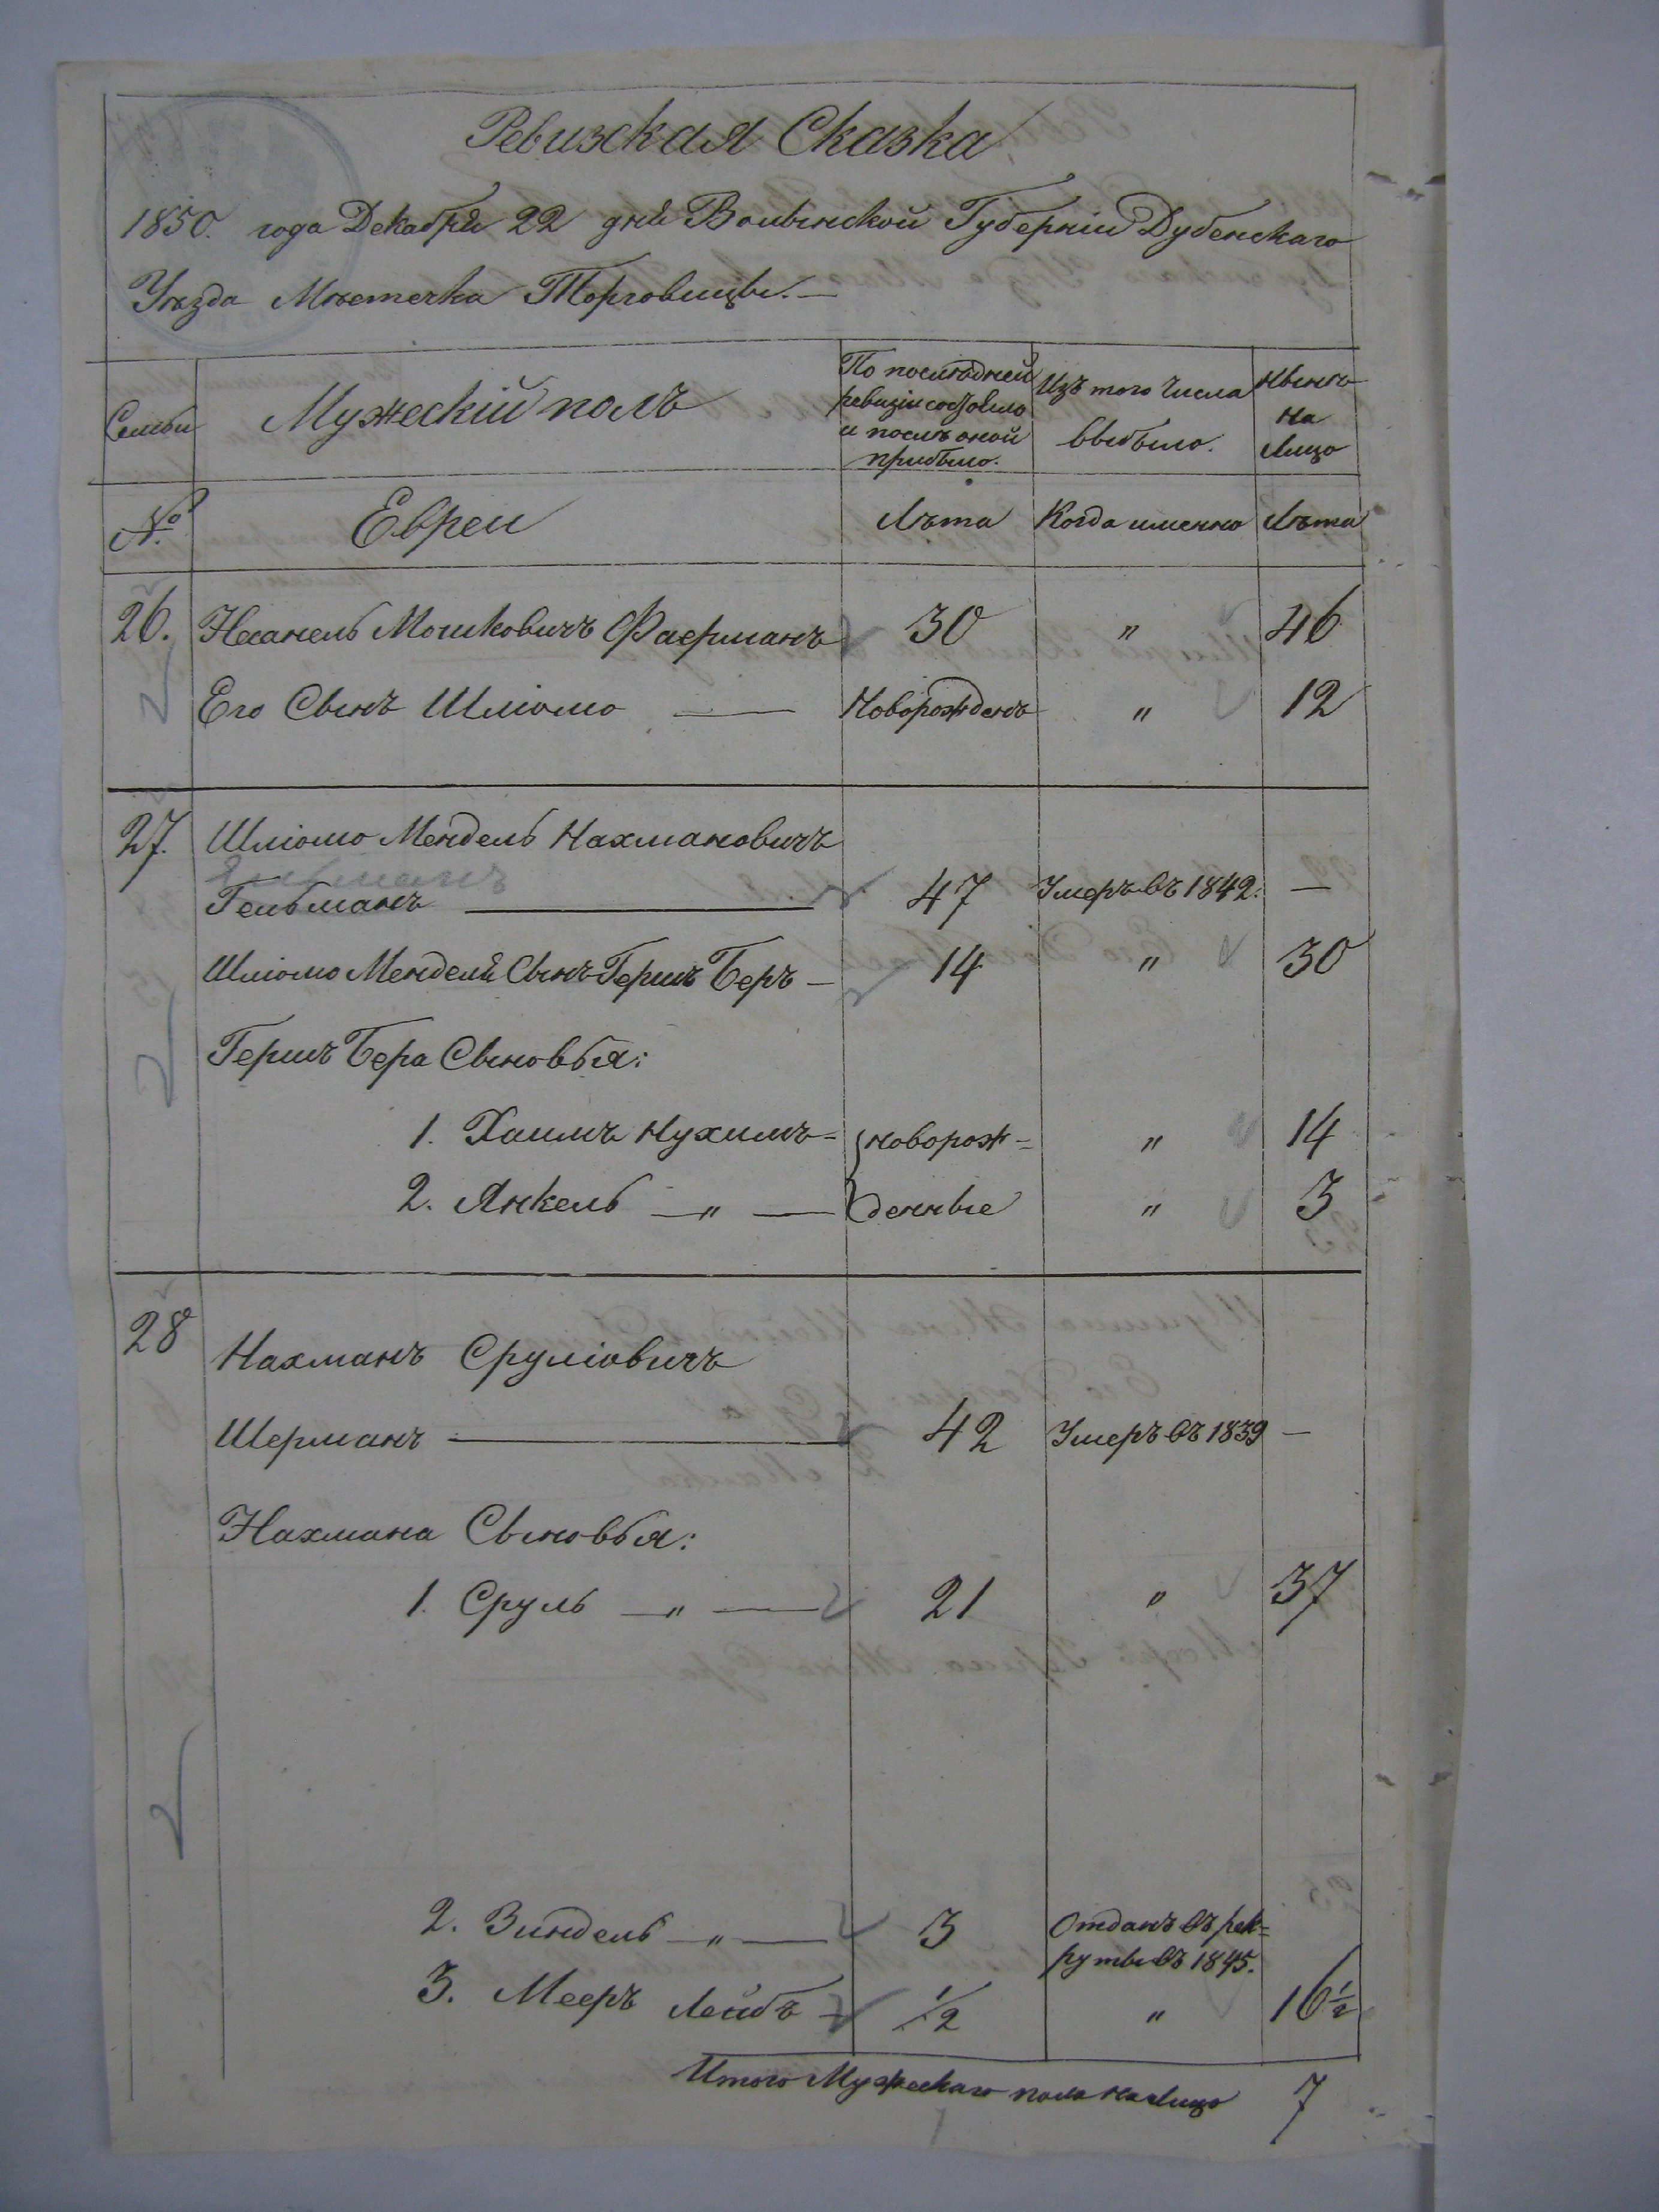 Ревизская Сказка
1850. года Декабря 22 дня Волынской Губернiи Дубенскаго
Уѣзда Мѣстечка Торговицы. —
Семьи
Мужескiй полъ
По послѣдней
ревизiи состояло
и послѣ оной
прибыло.
Изъ того Числа
выбыло.
Нынѣ
на
Лицо
№
Евреи
Лѣта
Когда именно
Лѣта
26. Несанель Мошковичъ Фаерманъ 30 " 46
Его Сынъ Шлiомо — Новорожденъ " 12
27. Шлiомо Мендель Нахмановичъ
Гельманъ — 47 Умеръ въ 1842. —
Шлiомо Менделя Сынъ Гершъ Беръ — 14 " 30
Гершъ Бера Сыновья:
1. Хаимъ Нухимъ = новорож= " 14
2. Янкель — " — денные " 3
28 Нахманъ Срулiовичъ
Шерманъ — 42 Умеръ въ 1839 —
Нахмана Сыновья:
1. Сруль — " — 21 " 37
2. Зиндель — " — 3 Отданъ въ рек=
руты въ 1845.
3. Мееръ Лейбъ — 1/2 " 16 1/2
Итого Мужескаго пола на лицо 7